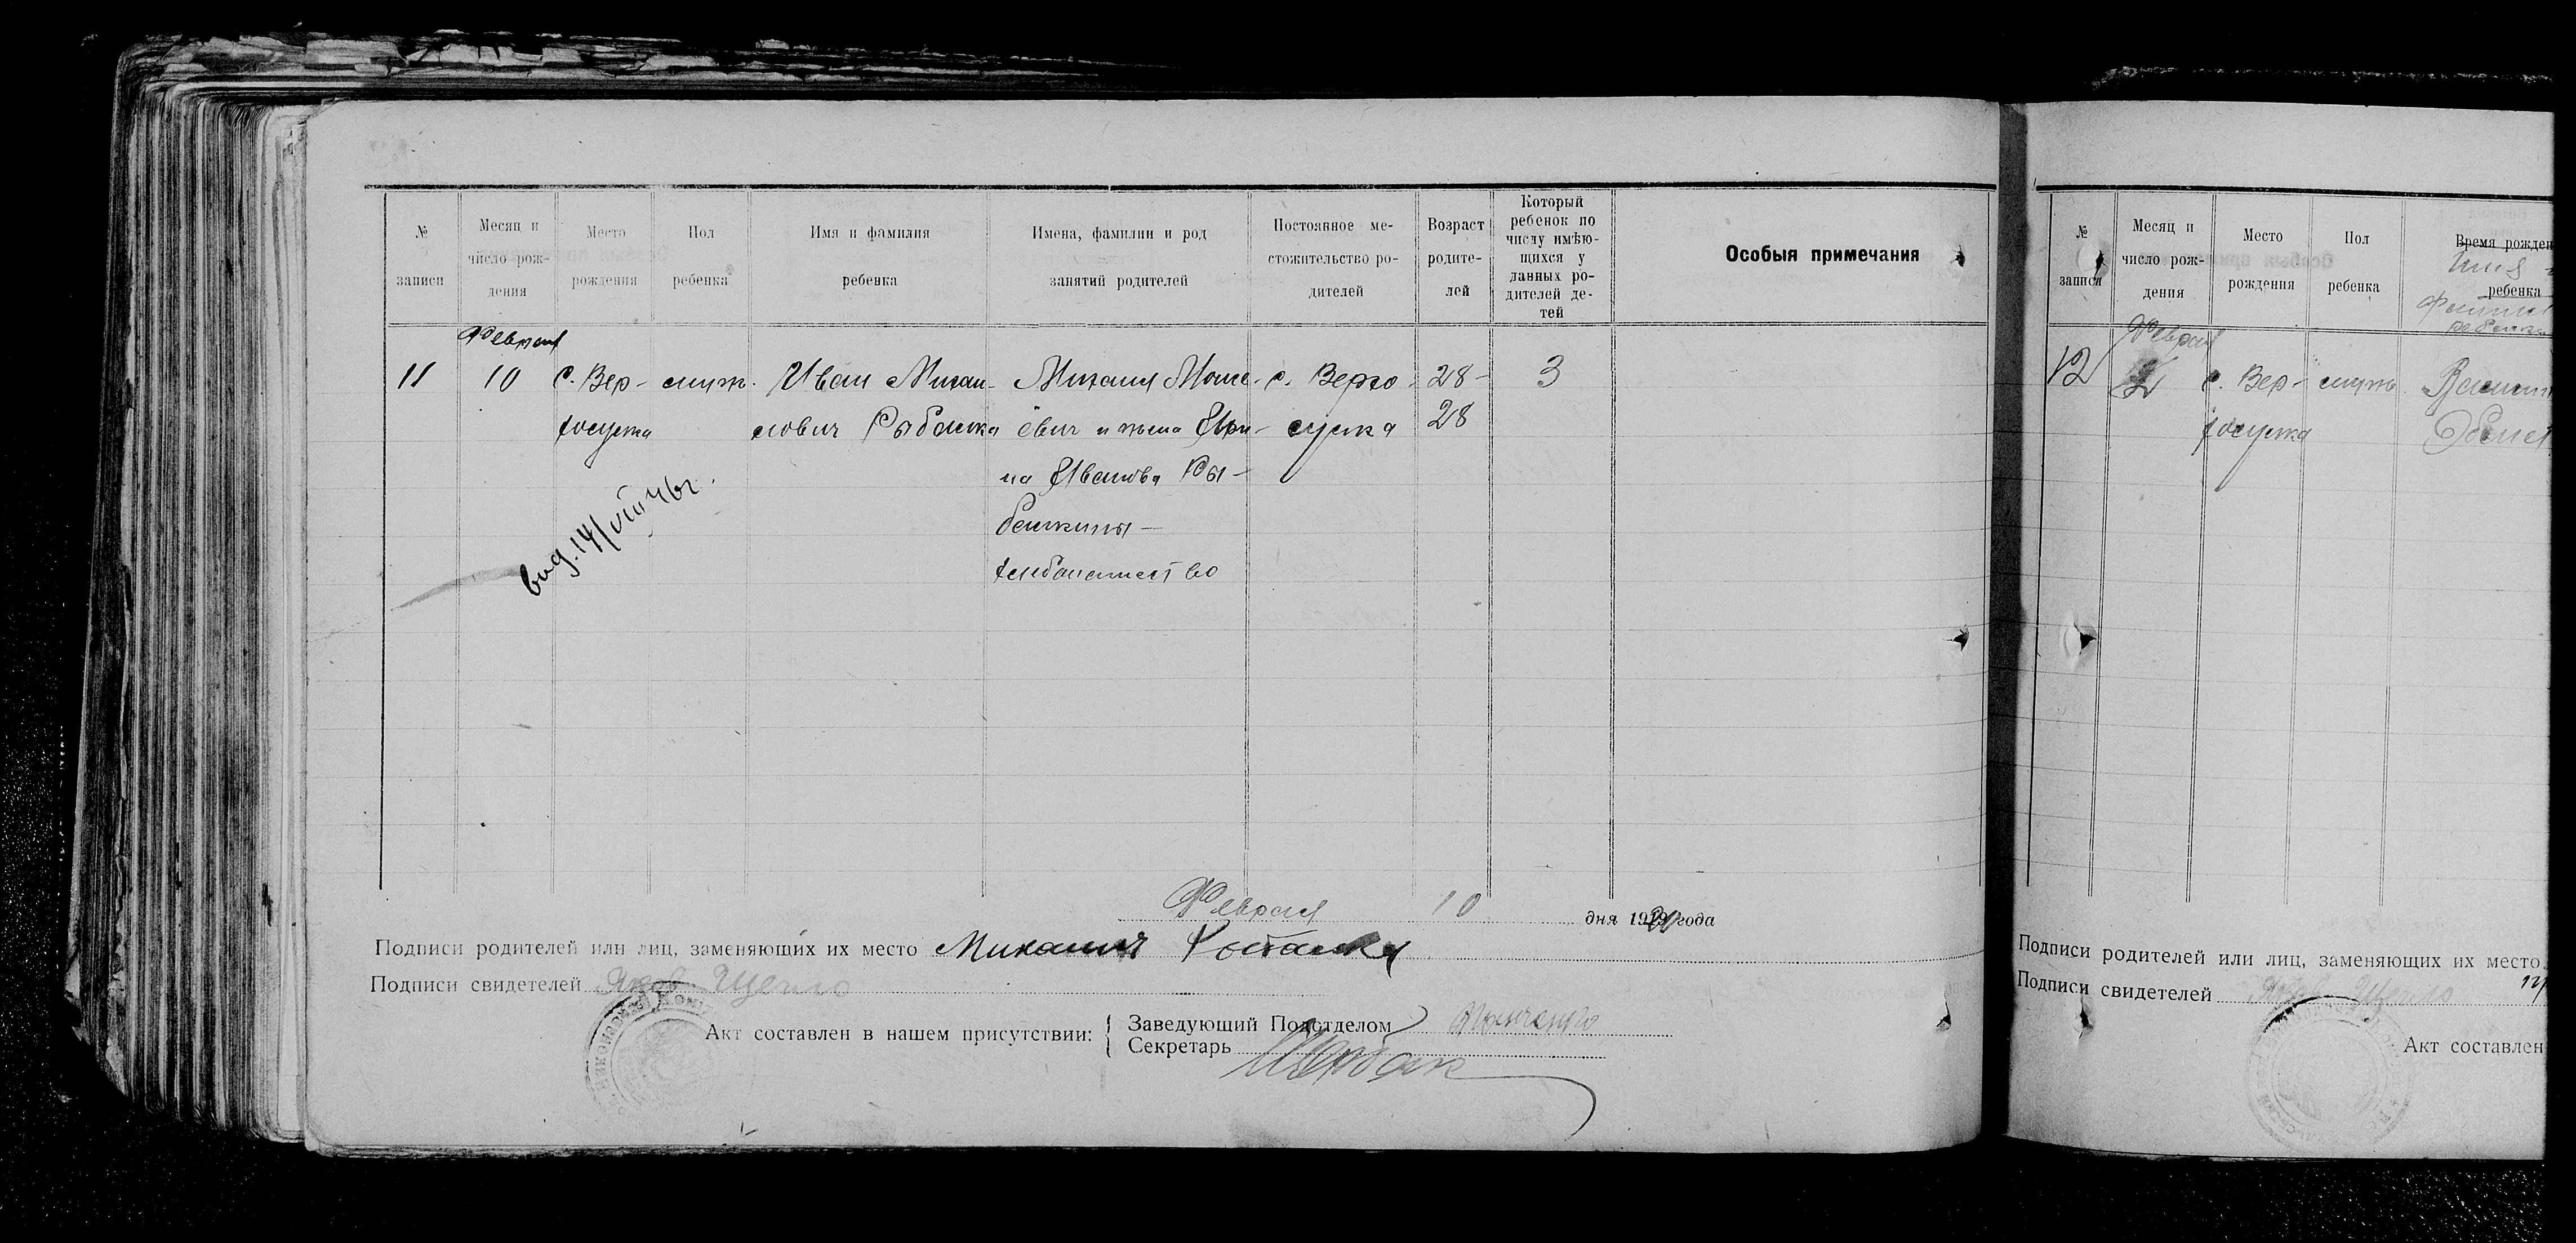 № записи
Месяц и число рождения
Место рождения
Пол ребенка
Имя и фамилия ребенка
Имена, фамилии и род занятий родителей
Постоянное местожительство родителей
Возраст родителей
Который ребенок по числу имѣющихся у данных родителей детей
Особыя примечания
Феврал
11 10 с. Вер- муж. Иван Михаи- Михаил Моисе- с. Верхо- 28- 3
хосулка лович Рыбалка евич и жена Ири- сулка 28
на Иванова Ры-
балкины-
хлебопашество
вид. 14/VIII 46г.
Феврал 10 дня года
Подписи родителей или лиц, заменяющих их место Михаил Рыбалка
Подписи свидетелей Яков
Акт составлен в нашем присутствии:
Заведующий Подотделом
Секретарь
№ записи
Месяц и число рождения
Место рождения
Пол ребенка
Время рожден
ребенка
Феврал
12 с. Вер- муж
хосулка
Подписи родителей или лиц, заменяющих их место
Подписи свидетелей Яков
Акт составлен